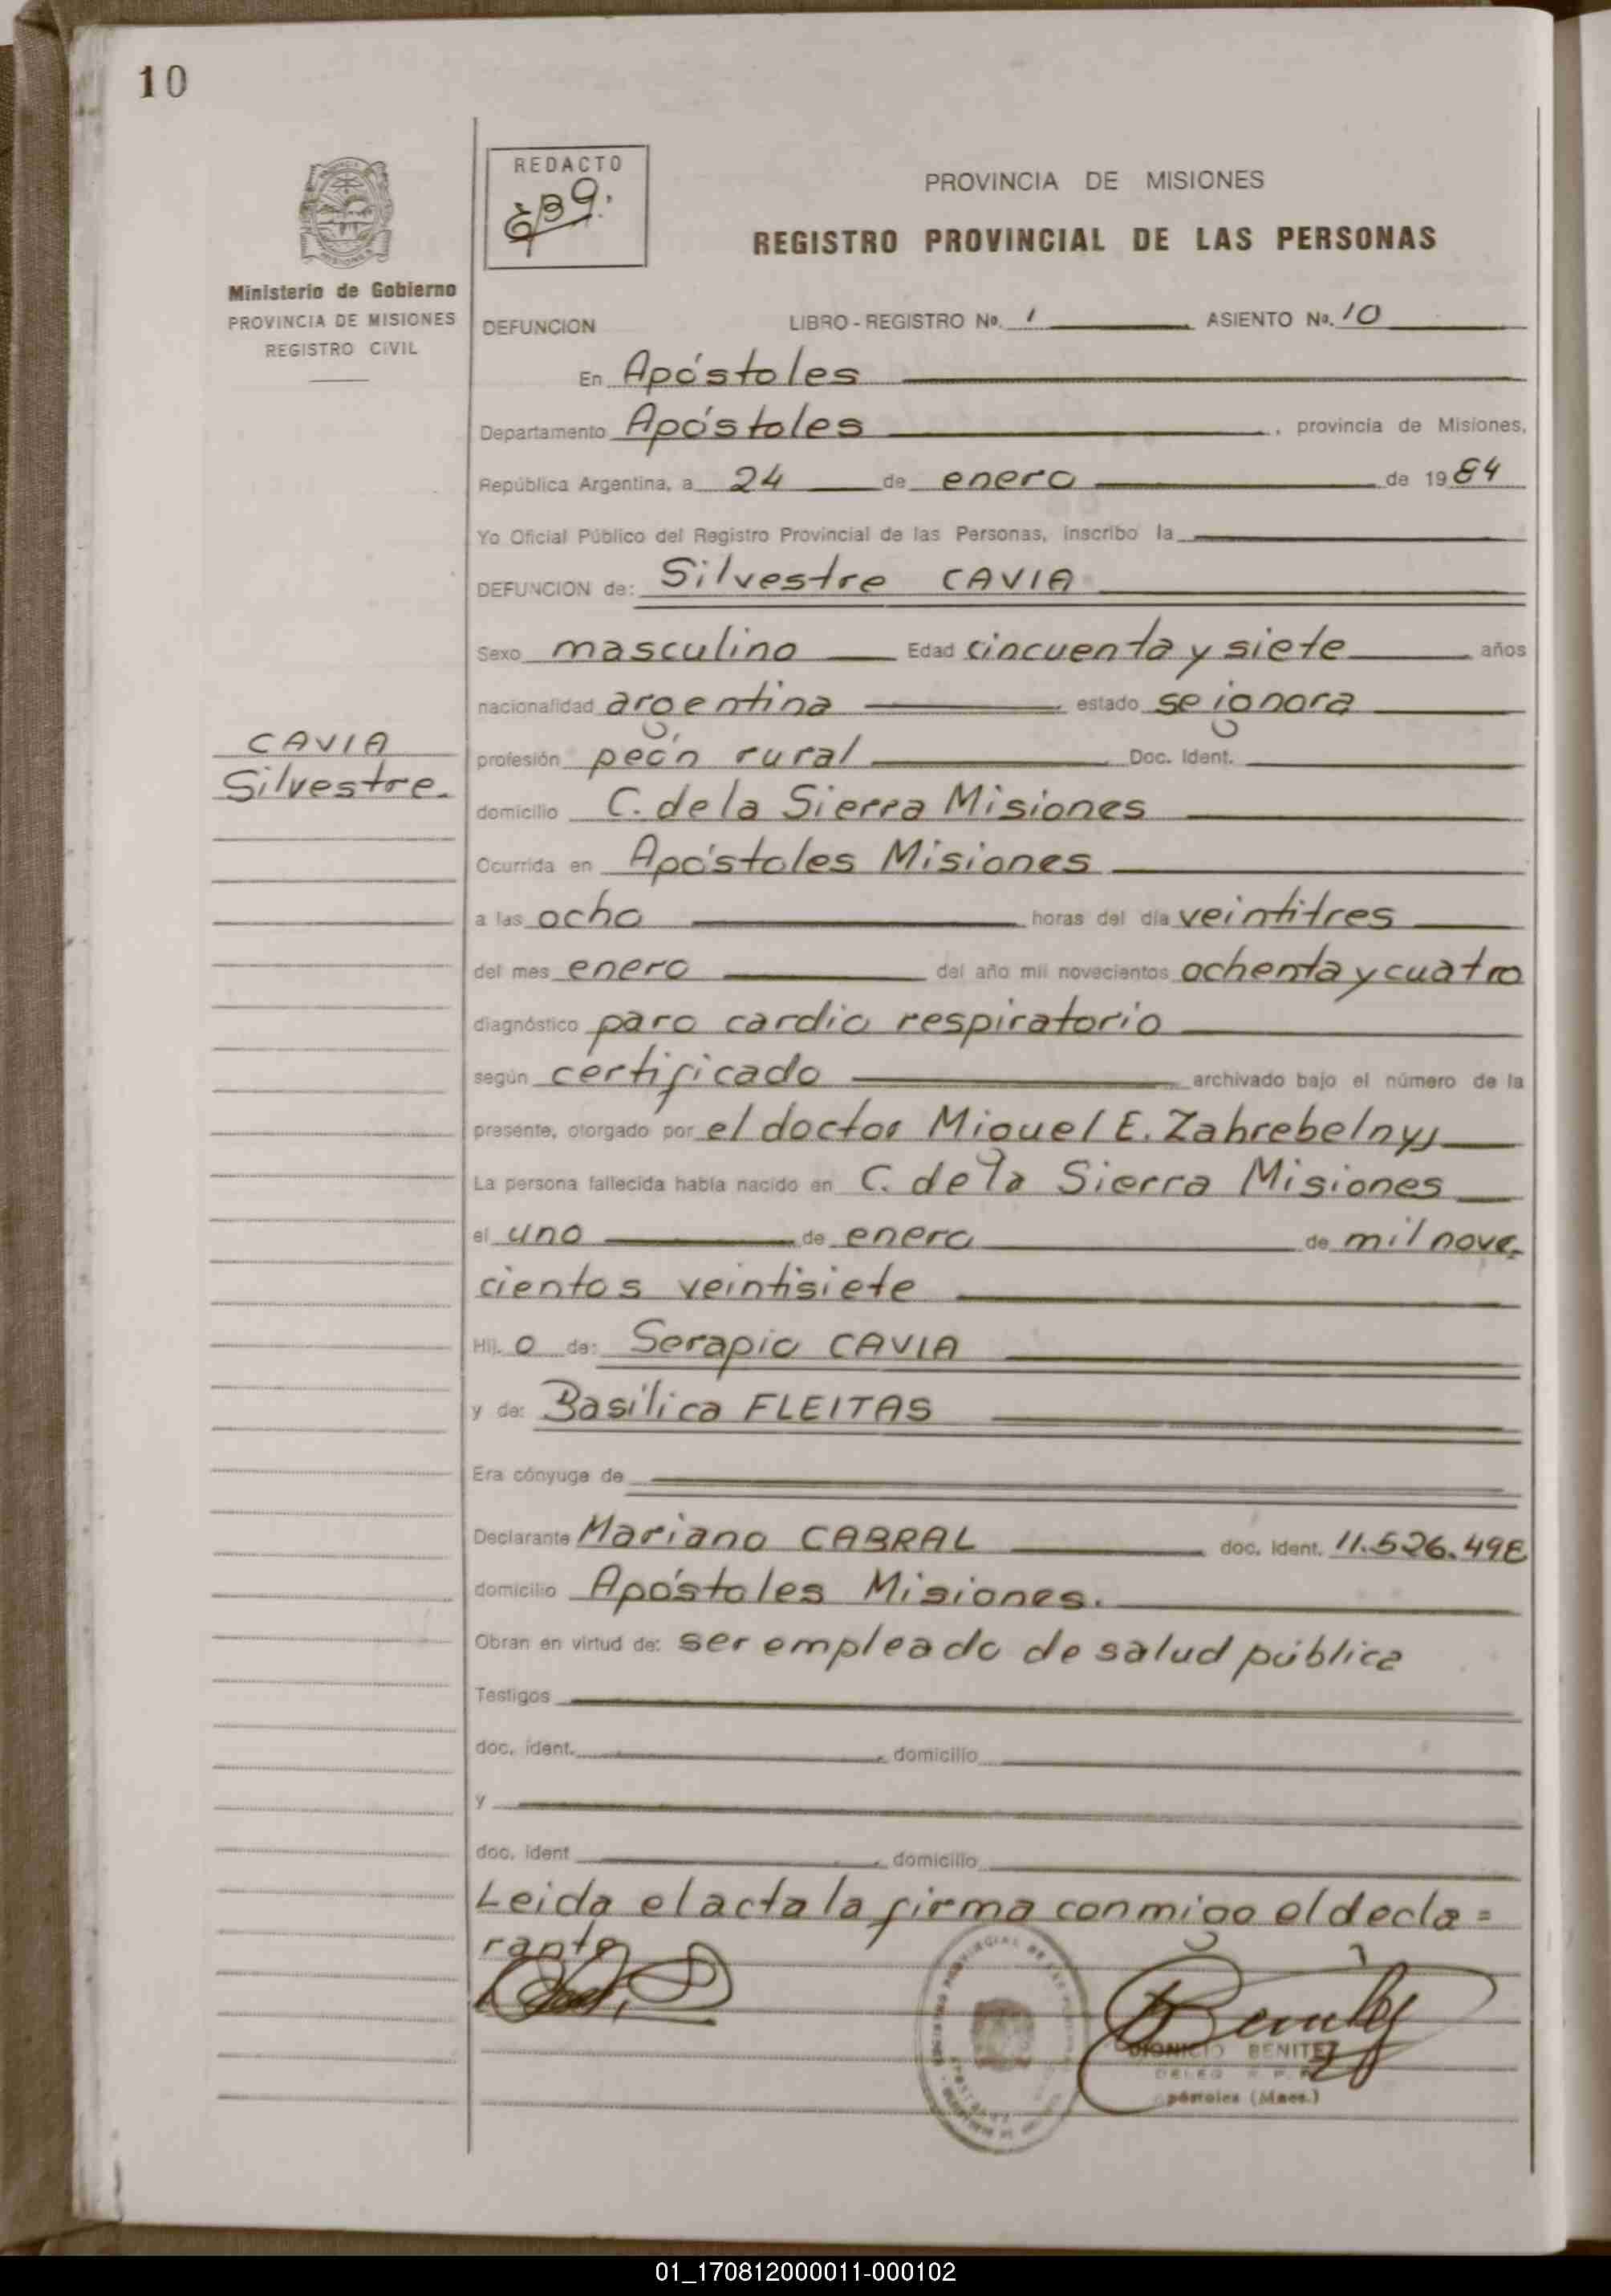 10
REDACTO
PROVINCIA DE MISIONES
REGISTRO PROVINCIAL DE LAS PERSONAS
Ministerio de Gobierno
PROVINCIA DE MISIONES
REGISTRO CIVIL
DEFUNCION LIBRO - REGISTRO No. 1 ASIENTO No. 10
En Apóstoles
Departamento Apóstoles, provincia de Misiones,
República Argentina, a 24 de enero de 1984
Yo Oficial Público del Registro Provincial de las Personas, inscribo la
DEFUNCION de: Silvestre CAVIA
Sexo masculino Edad cincuenta y siete años
nacionalidad argentina estado se ignora
CAVIA
Silvestre.
profesión peón rural Doc. Ident.
domicilio C. de la Sierra Misiones
Ocurrida en Apóstoles Misiones
a las ocho horas del día veintitres
del mes enero del año mil novecientos ochenta y cuatro
diagnóstico paro cardio respiratorio
según certificado archivado bajo el número de la
presente, otorgado por el doctor Miguel E. Zahrebelnyj
La persona fallecida había nacido en C. de la Sierra Misiones
el uno de enero de mil nove-
cientos veintisiete
Hij. o de: Serapio CAVIA
y de: Basilica FLEITAS
Era cónyuge de
Declarante Mariano CABRAL doc. Ident. 11.526.498
domicilio Apóstoles Misiones.
Obran en virtud de: ser empleado de salud pública
Testigos
doc. ident. domicilio
y
doc. ident domicilio
Leida el acta la firma conmigo el decla=
rante
DIONICIO BENITEZ
DELEG R. P. P.
Apóstoles (Mnes.)
01_170812000011-000102